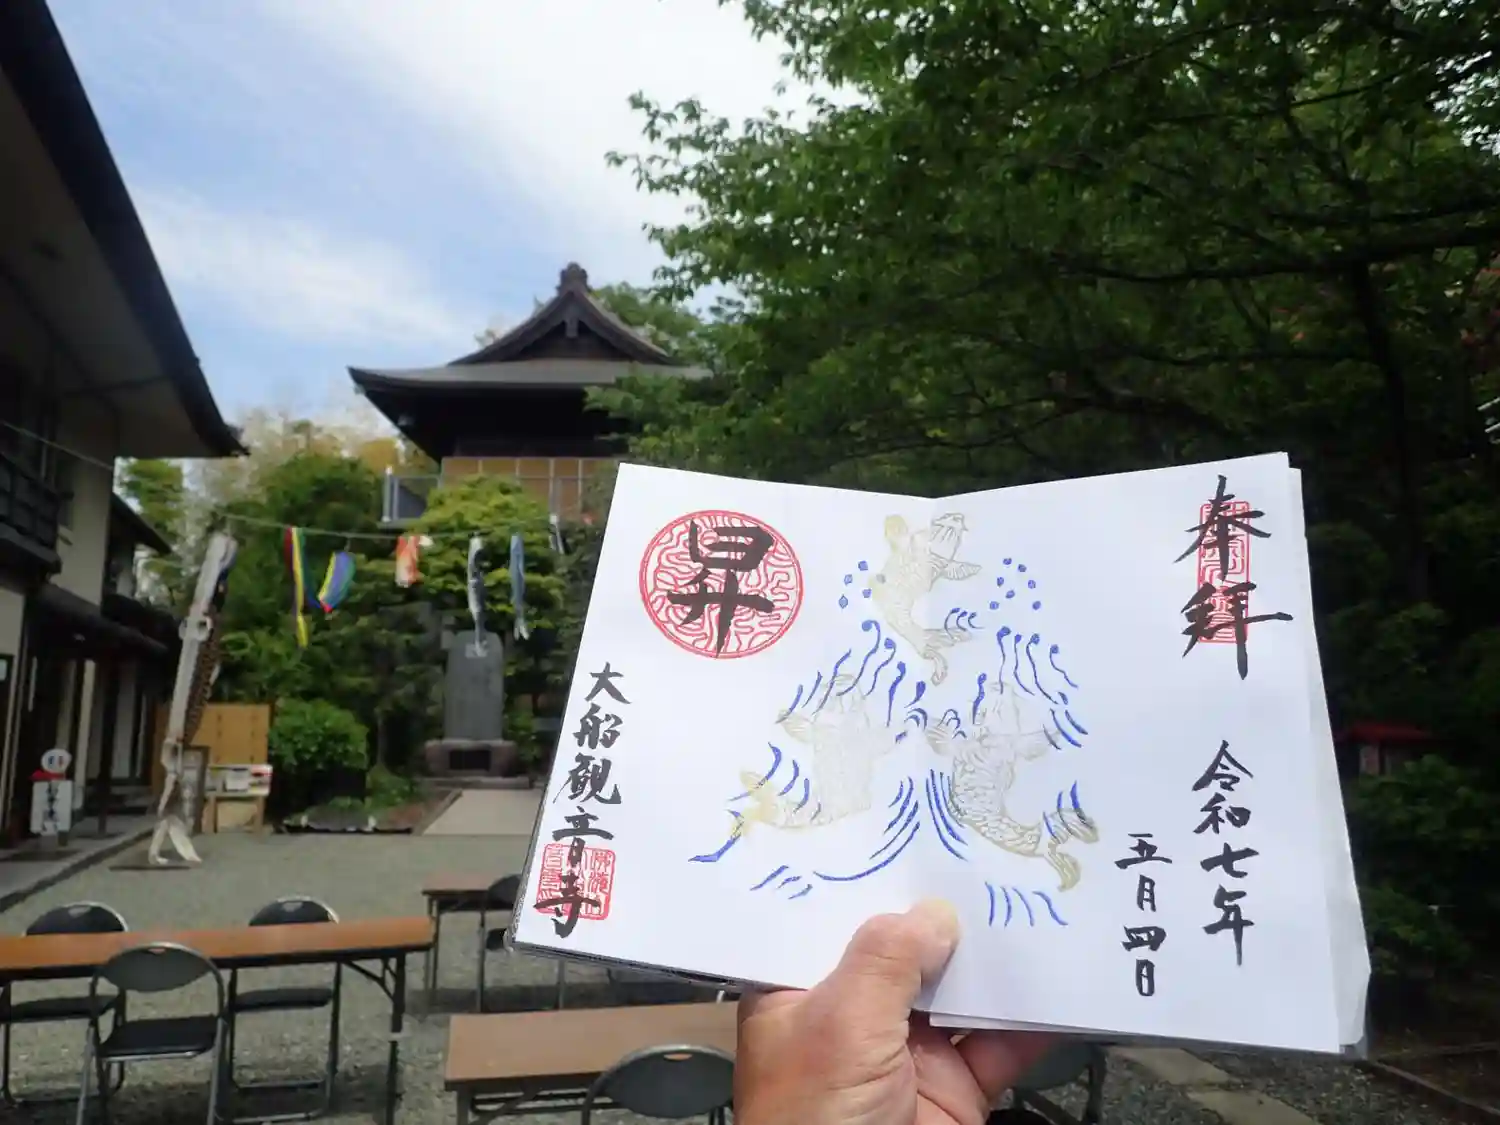 奉拝
令和七年
五月四日
昇
大船観音寺